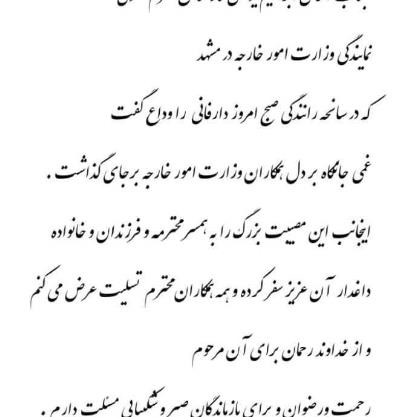 نمایندگی وزارت امور خارجه در مشهد
که در سانحه رانندگی صبح امروز دارفانی را وداع گفت
غمی جانکاه بر دل همکاران وزارت امور خارجه برجای گذاشت .
اینجانب این مصیبت بزرگ را به همسر محترمه و فرزندان و خانواده
داغدار آن عزیز سفر کرده و همه همکاران محترم تسلیت عرض می کنم
و از خداوند رحمان برای آن مرحوم
رحمت ورضوان و برای بازماندگان صبر و شکیبایی مسئلت دارم .